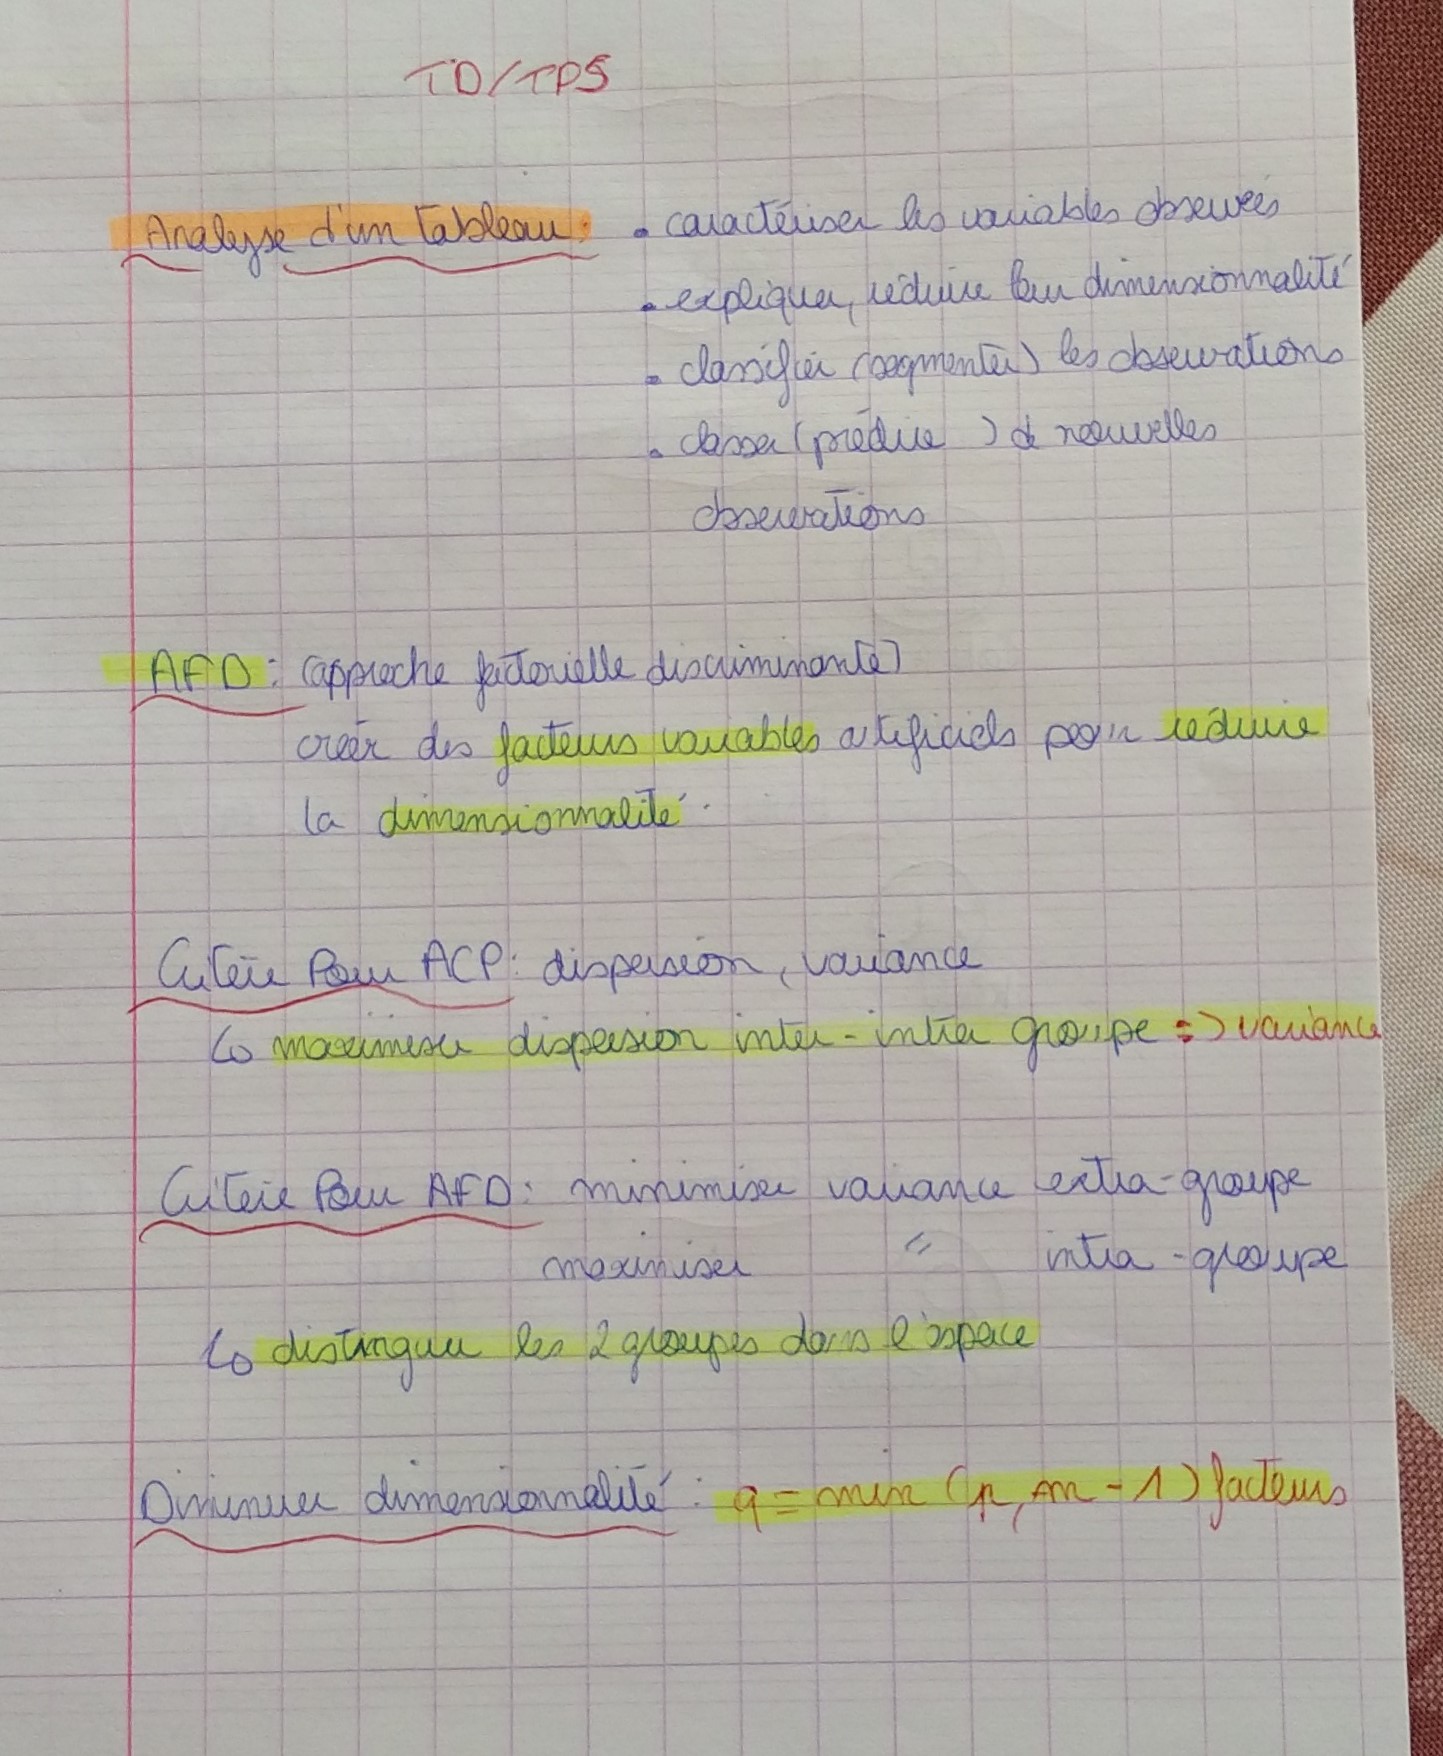 TD/TP5
Analyse d'un tableau : • caractériser les variables observées
• expliquer, réduire leur dimensionnalité
• classifier (segmenter) les observations
• classer (prédire ) de nouvelles
observations
AFD : (approche factorielle discriminante)
créer des facteurs variables artificiels pour réduire
la dimensionnalité.
Critère Pour ACP : dispersion, variance
↳ maximiser dispersion inter-intra groupe => variance
Critère Pour AFD : minimiser variance extra-groupe
maximiser " intra-groupe
↳ distinguer les 2 groupes dans l'espace
Diminuer dimensionnalité : q = min (p, m - 1) facteurs